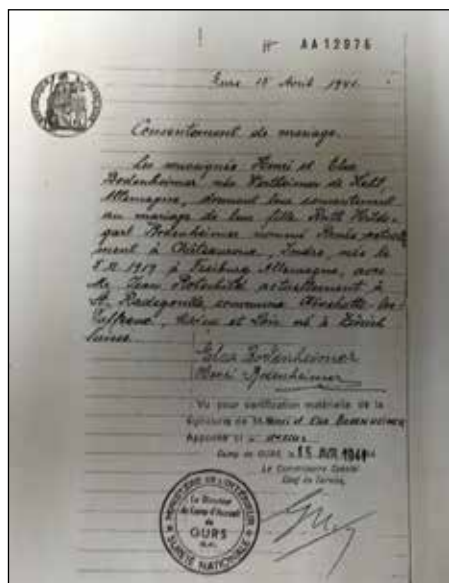 N° AA12976
Gurs 15 Avril 1941.
Consentement de mariage.
Les soussignés Henri et Elsa
Bodenheimer née Wertheimer de Kehl,
Allemagne, donnent leur consentement
au mariage de leur fille Ruth Hilde-
gart Bodenheimer nommé Renée actuelle-
ment à Châteauroux, Indre, née le
1919 à Freiburg Allemagne, avec
Mr Jean actuellement à
St. Radegonde, commune
et né à Zürich
Suisse
Elsa Bodenheimer
Henri Bodenheimer
Vu pour vérification matérielle de la
signature de M. Henri et Elsa BODENHEIMER
Apposée ci
Camp de GURS, le 15 AVR 1941
Le Commissaire Spécial
Chef du Service,
MINISTÈRE DE L'INTÉRIEUR
Le Directeur
du Camp d'Accueil
de
GURS
SURETÉ NATIONALE